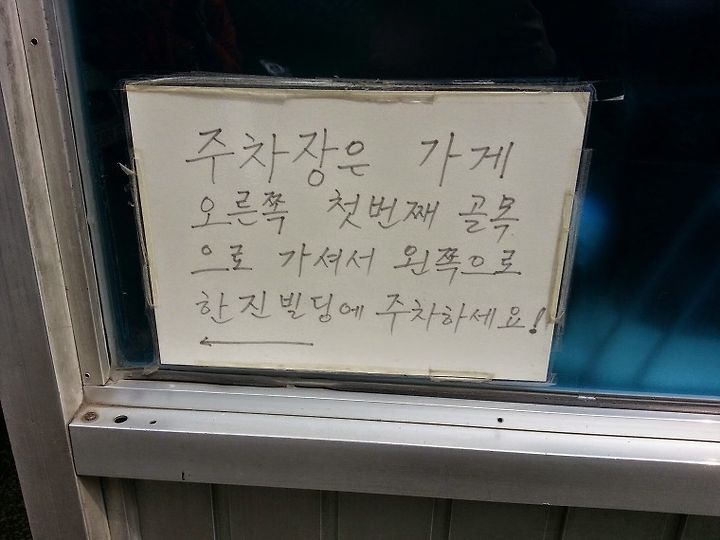 주차장은 가게
오른쪽 첫번째 골목
으로 가셔서 왼쪽으로
한진빌딩에 주차하세요!